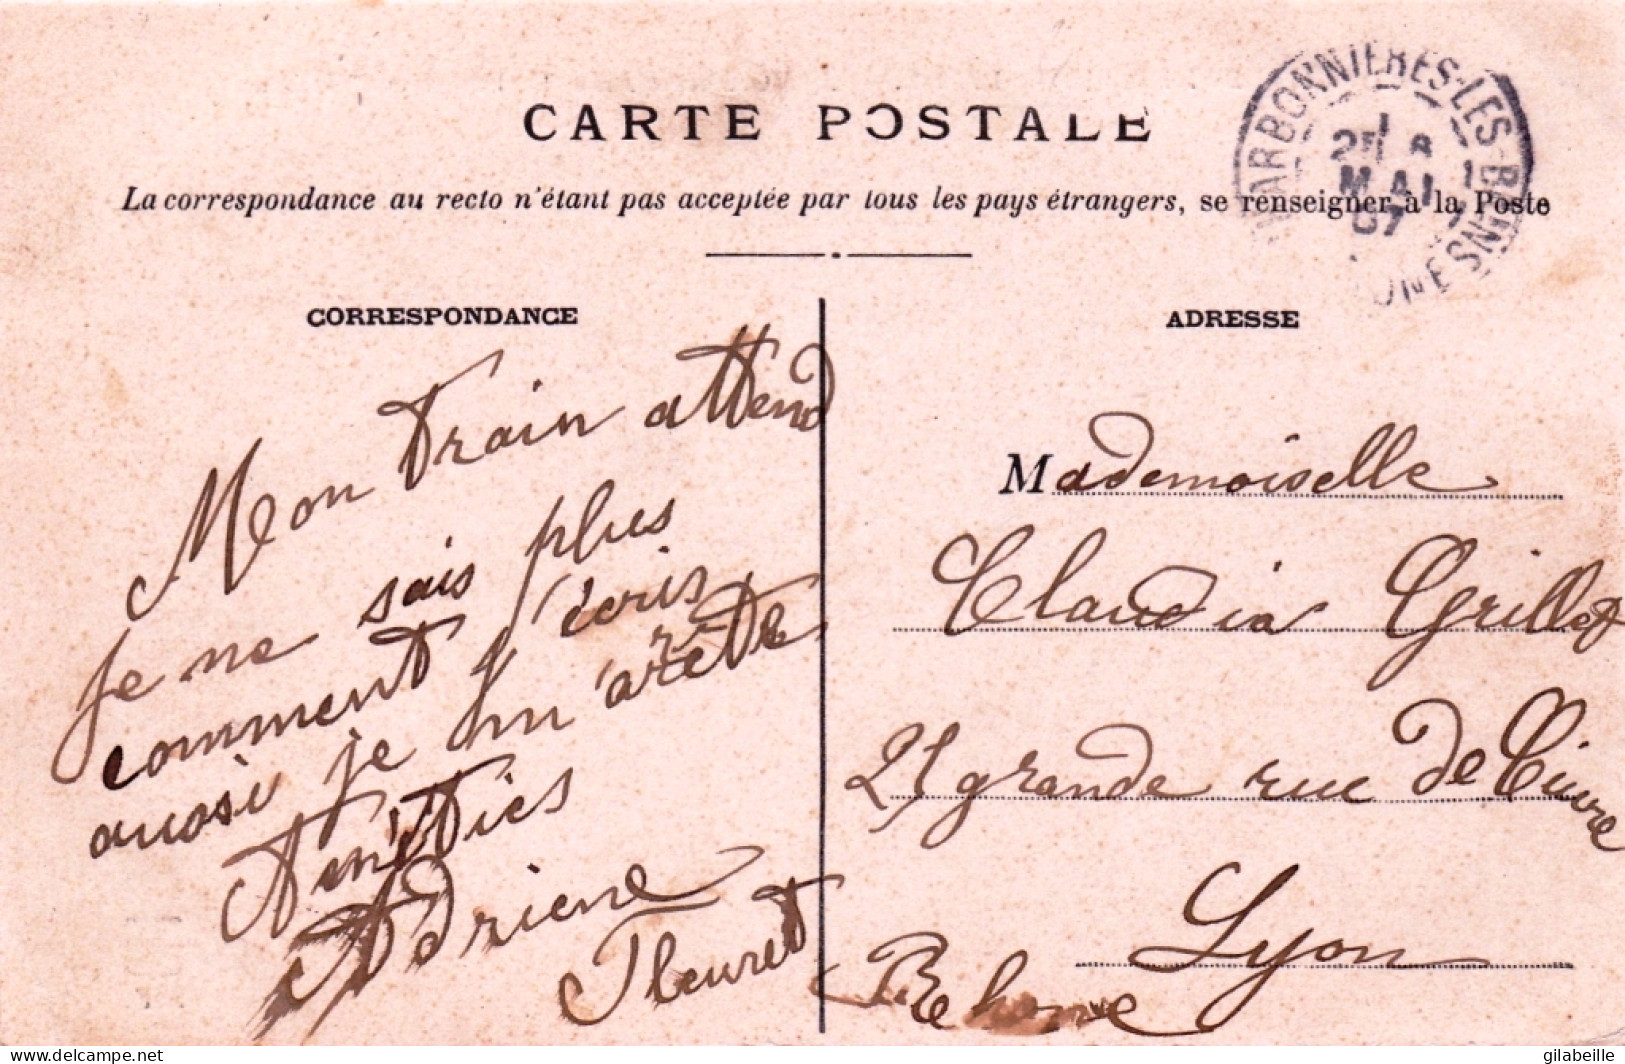 CARTE POSTALE
La correspondance au recto n'étant pas acceptée par tous les pays étrangers, se renseigner à la Poste
CHARBONNIERES-LES-BAINS
25 8
MAI
07
RHONE
CORRESPONDANCE
Mon train attend
je ne sais plus
comment j'écris
aussi je m'arète
Adriene
Fleuret
ADRESSE
Mademoiselle
Claudia Grillet
21 grande rue de Cuivre
Lyon
Rhone
delcampe.net
gilabeille